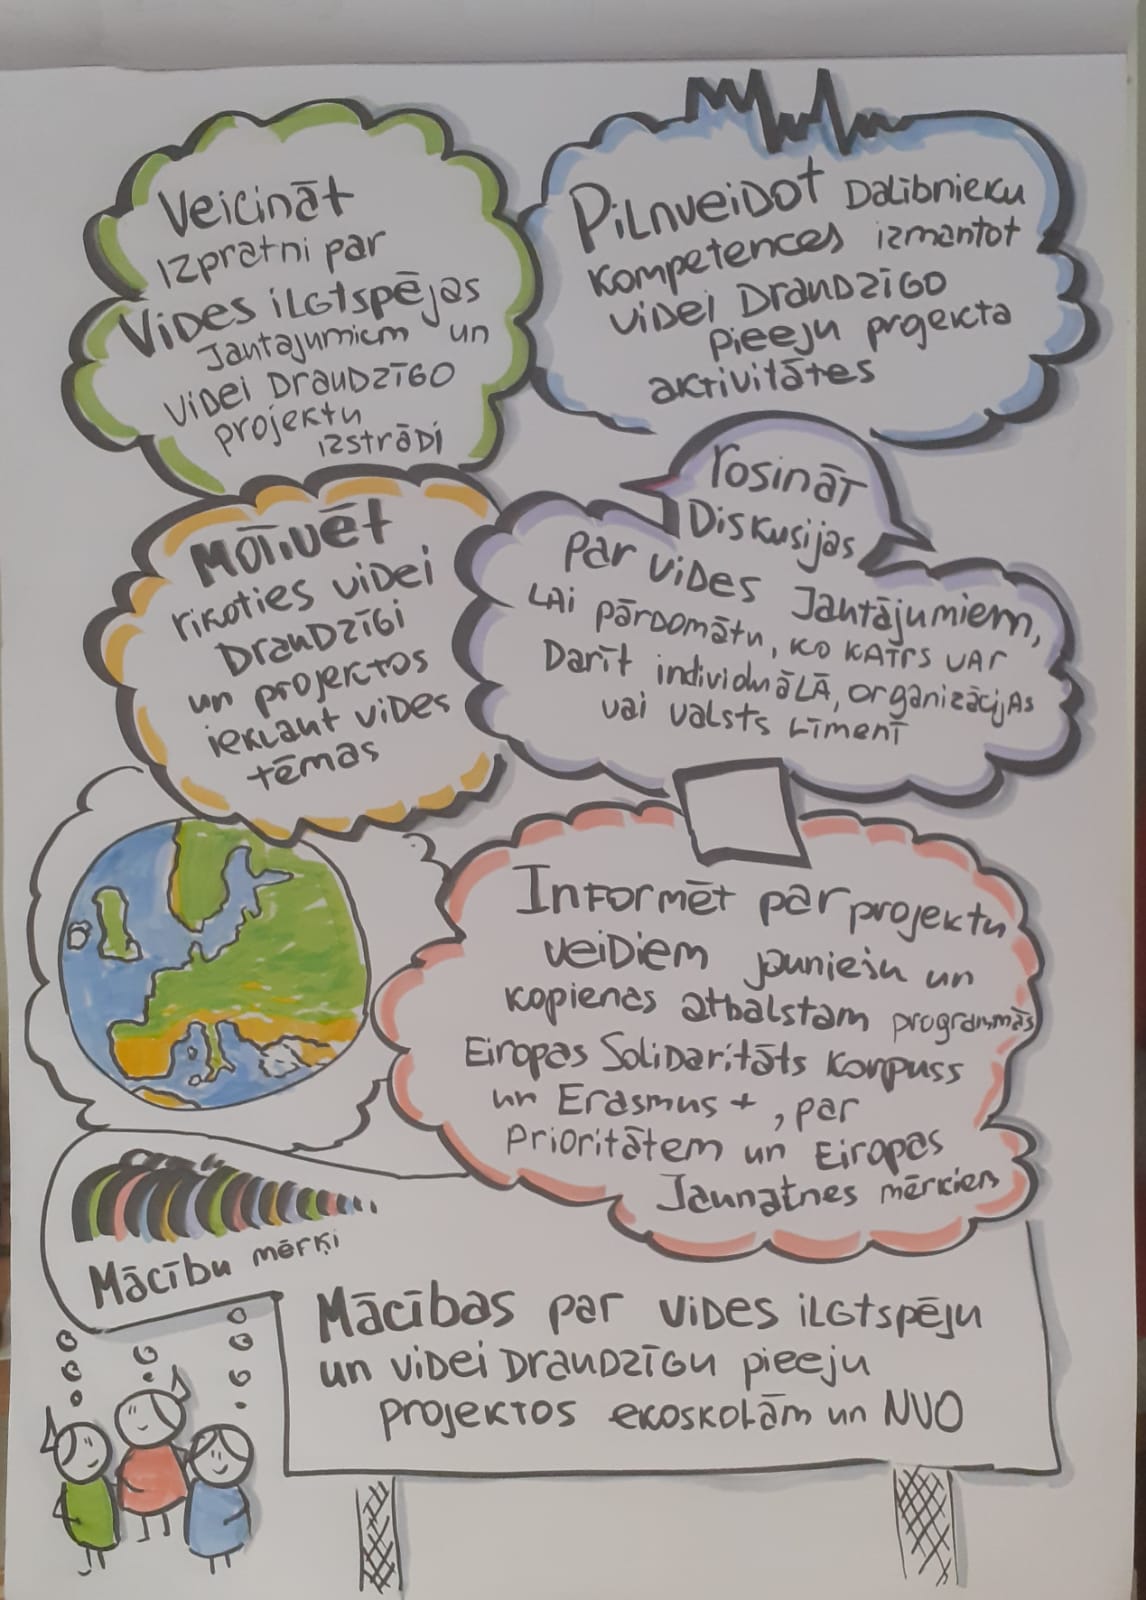 Veicināt
izpratni par
Vides ilgtspējas
Jautājumiem un
videi Draudzīgo
projektu
izstrādi
Pilnveidot Dalībnieku
kompetences izmantot
videi Draudzīgo
pieeju projekta
aktivitātes
Motivēt
rīkoties videi
Draudzīgi
un projektos
iekļaut vides
tēmas
rosināt
Diskusijas
par vides Jautājumiem,
Lai pārdomātu, ko katrs var
Darīt individuālā, organizācijas
vai valsts Līmenī
Informēt par projektu
veidiem jauniešu un
kopienas atbalstam programmās
Eiropas Solidaritāts Korpuss
un Erasmus+, par
Prioritātēm un Eiropas
Jaunatnes mērķiem
Mācību mērķi
Mācības par vides ilgtspēju
un videi Draudzīgu pieeju
projektos ekoskolām un NVO